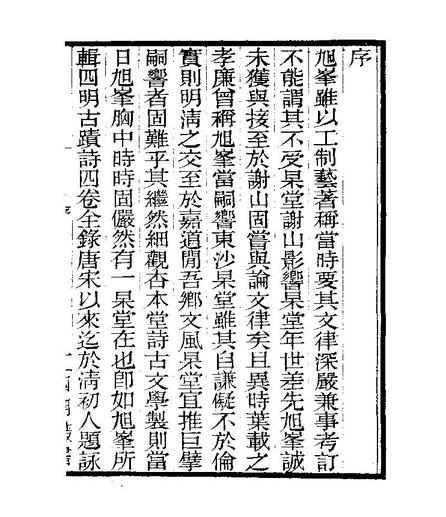 序
旭峯雖以工制藝著稱當時要其文律深嚴兼事考訂
不能謂其不受杲堂謝山影響杲堂年世差先旭峯誠
未獲與接至於謝山固嘗與論文律矣且異時葉載之
孝廉曾稱旭峯當嗣響東沙杲堂雖其自謙儗不於倫
實則明淸之交至於嘉道閒吾鄉文風杲堂宜推巨擘
嗣響者固難乎其繼然細觀杏本堂詩古文學製則當
日旭峯胸中時時固儼然有一杲堂在也卽如旭峯所
輯四明古蹟詩四卷全錄唐宋以來迄於淸初人題詠